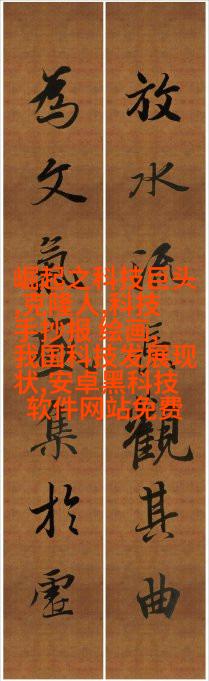 放水流觀其曲
為文氣集於虛
崛起之科技巨头
,克隆人,科技
手抄报,绘画,
我国科技发展现
状,安卓黑科技
软件网站免费